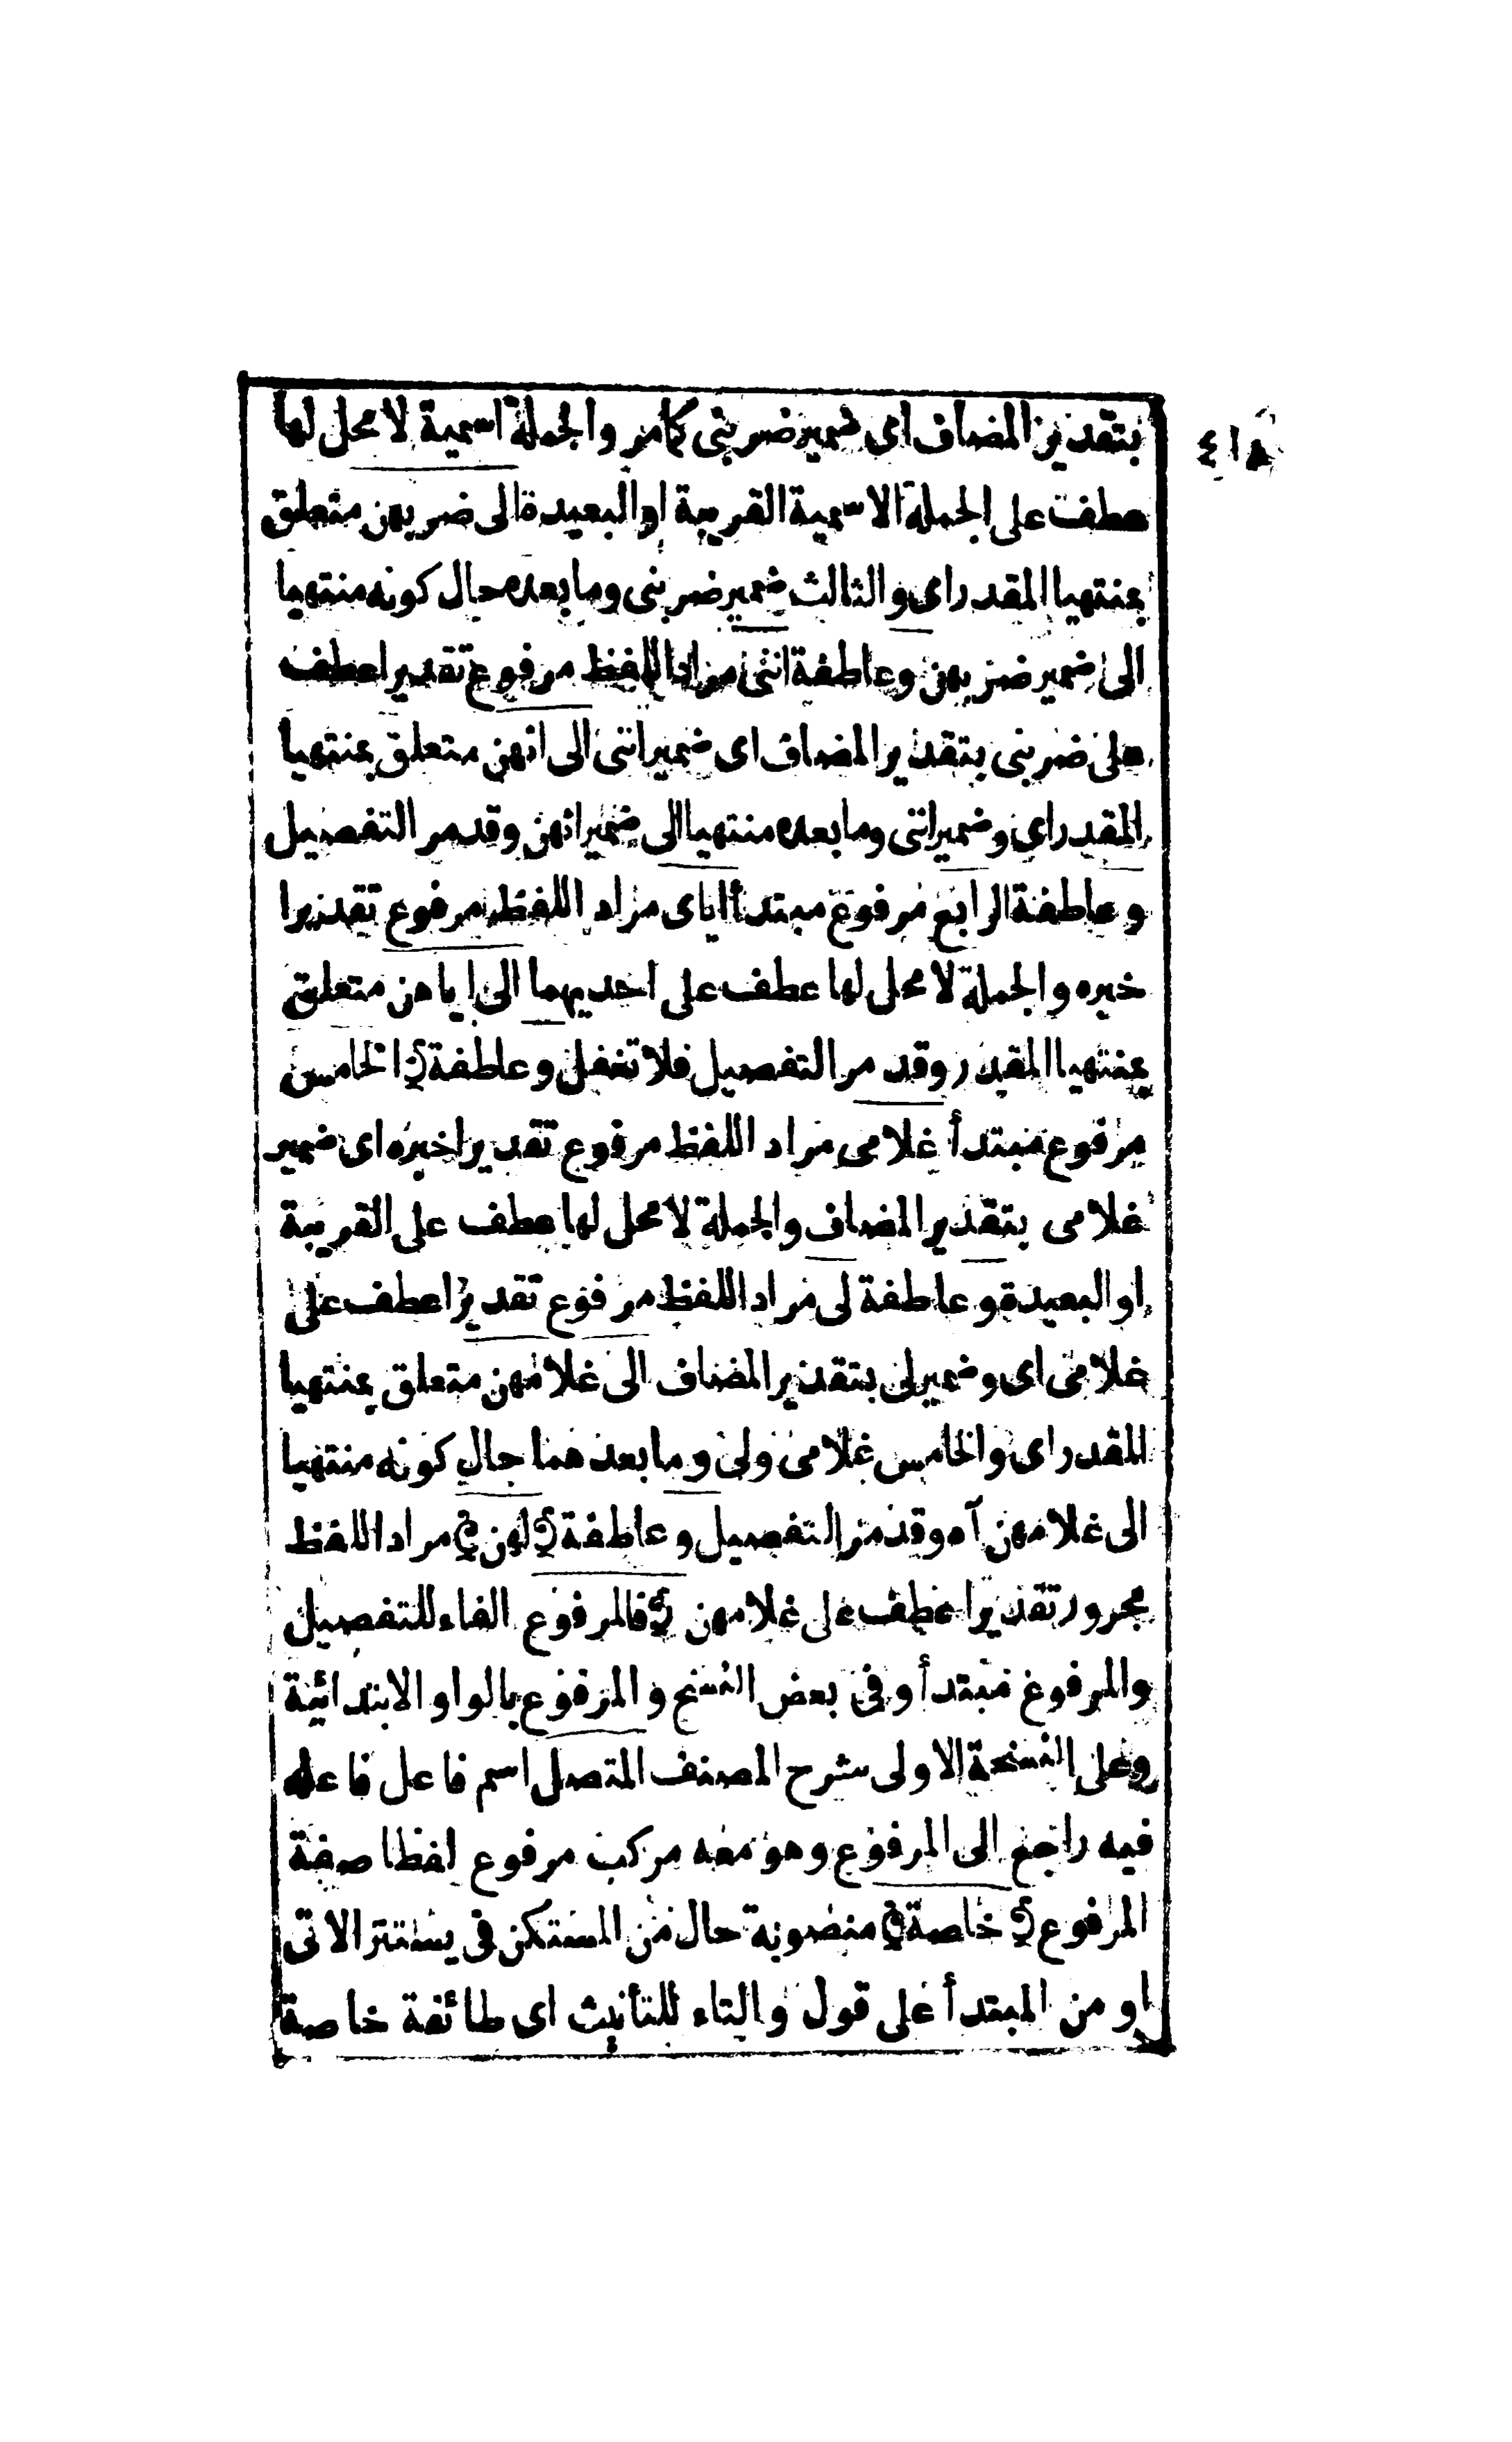 ٤١٨
بتقدير المضاف اى ضمير ضربنى كمامر والجملة اسمية لا محل لها
عطف على الجملة الاسمية القريبة او البعيدة الى ضربهن متعلق
بمنتهيا المقدر اى و الثالث ضمير ضربنى وما بعده حال كونه منتهيا
الى ضمير ضربهن وعاطفة اننى مراد اللفظ مرفوع تقديرا عطف
على ضربنى بتقدير المضاف اى ضمير اننى الى انهن متعلق بمنتهيا
المقدر اى وضمير اننى وما بعده منتهيا الى ضمير انهن وقد مر التفصيل
و عاطفة الرابع مرفوع مبتدأ اياى مراد اللفظ مرفوع تقديرا
خبره والجملة لا محل لها عطف على احديهما الى اياهن متعلق
بمنتهيا المقدر وقد مر التفصيل فلا تغفل وعاطفة الخامس
مرفوع مبتدأ غلامى مراد اللفظ مرفوع تقديرا خبره اى ضمير
غلامى بتقدير المضاف والجملة لا محل لها عطف على القريبة
او البعيدة و عاطفة لى مراد اللفظ مرفوع تقديرا عطف على
غلامى اى وضمير لى بتقدير المضاف الى غلامهن متعلق بمنتهيا
المقدر اى والخامس غلامى ولى وما بعد هما حال كونه منتهيا
الى غلامهن آه وقد مر التفصيل و عاطفة لهن مراد اللفظ
مجرور تقديرا عطف على غلامهن فالمرفوع الفاء للتفصيل
والمرفوع مبتدأ وفى بعض النسخ والمرفوع بالواو الابتدائية
وعلى النسخة الاولى شرح المصنف المتصل اسم فاعل فاعله
فيه راجع الى المرفوع وهو معه مركب مرفوع لفظا صفة
المرفوع خاصة منصوبة حال من المستكن فى يستتر الاتى
او من المبتدأ على قول والتاء للتأنيث اى طائفة خاصة